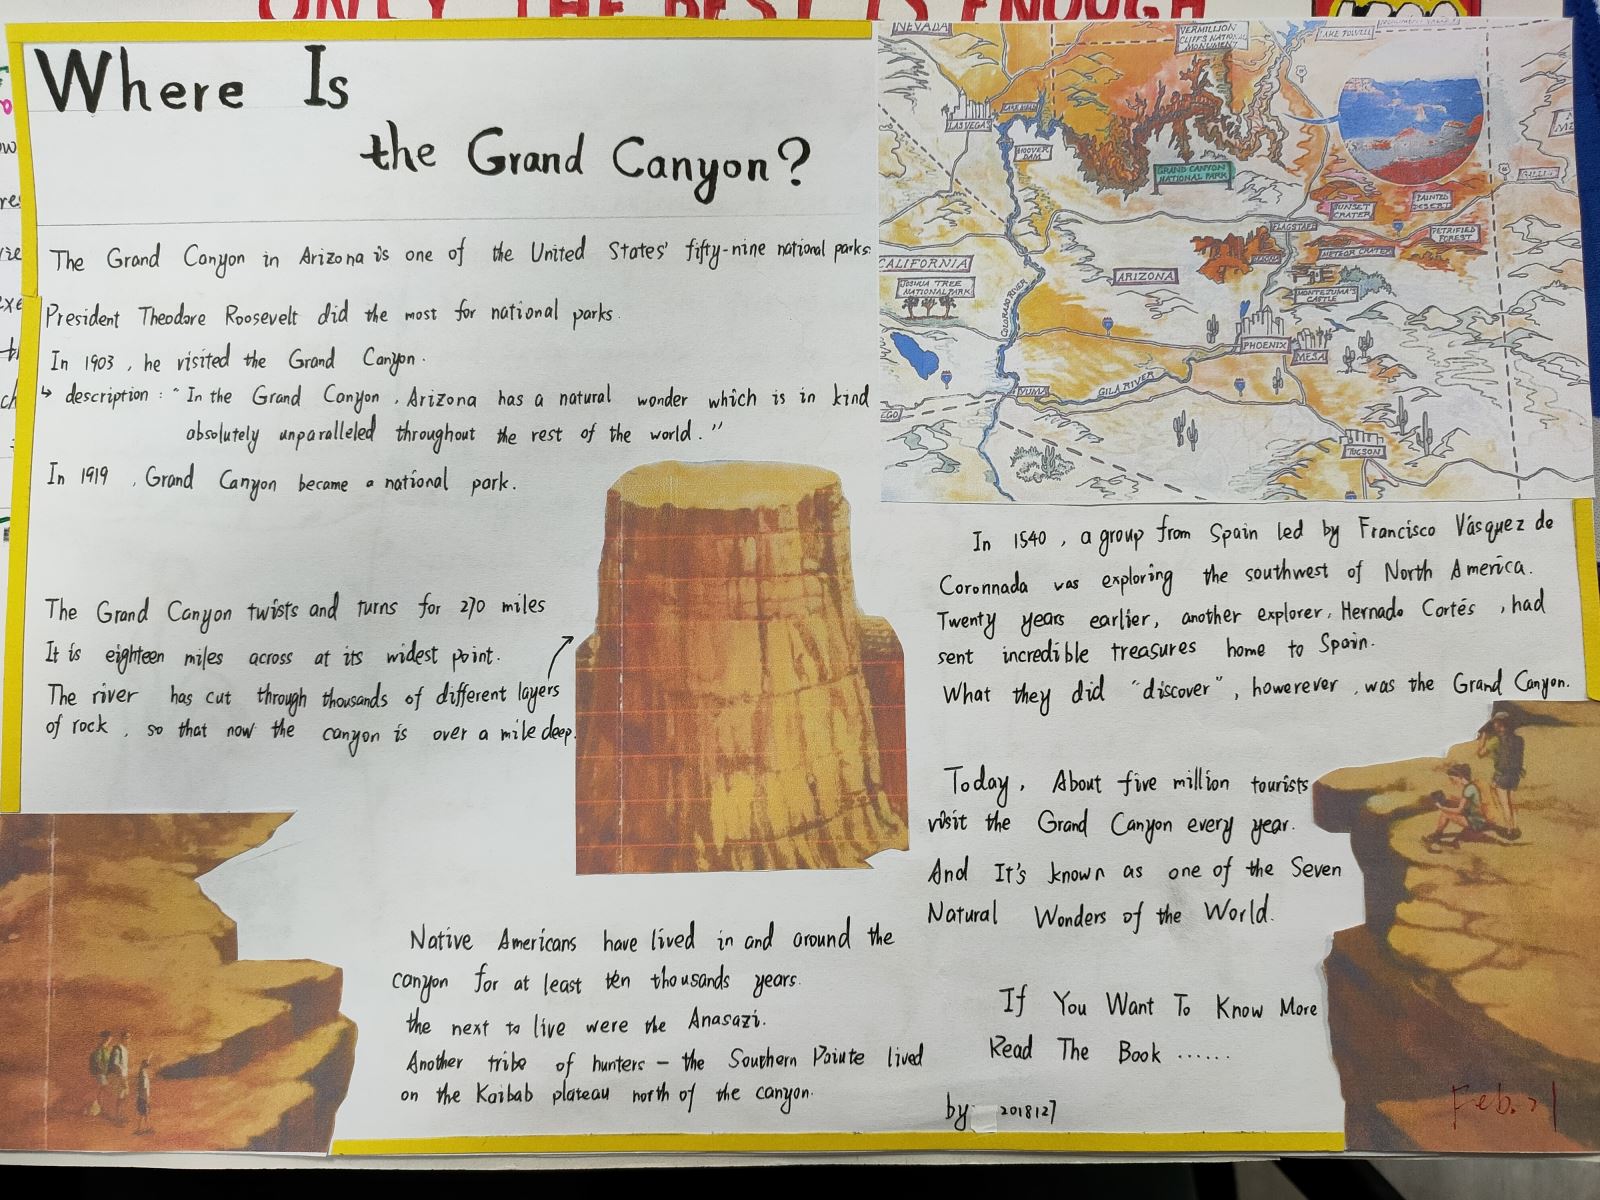 ONLY THE BEST IS ENOUGH
Where Is
the Grand Canyon?
The Grand Canyon in Arizona is one of the United States' fifty-nine national parks.
President Theodore Roosevelt did the most for national parks.
In 1903, he visited the Grand Canyon.
↳ description: "In the Grand Canyon, Arizona has a natural wonder which is in kind
absolutely unparalleled throughout the rest of the world."
In 1919, Grand Canyon became a national park.
The Grand Canyon twists and turns for 270 miles
It is eighteen miles across at its widest point.
The river has cut through thousands of different layers
of rock, so that now the canyon is over a mile deep.
Native Americans have lived in and around the
canyon for at least ten thousands years.
the next to live were the Anasazi.
Another tribe of hunters – the Southern Paiute lived
on the Kaibab plateau north of the canyon.
NEVADA
VERMILLION
CLIFFS NATIONAL
MONUMENT
LAKE POWELL
LAS VEGAS
HOOVER
DAM
GRAND CANYON
NATIONAL PARK
SUNSET
CRATER
PAINTED
DESERT
GALLUP
FLAGSTAFF
PETRIFIED
FOREST
METEOR CRATER
SEDONA
CALIFORNIA
JOSHUA TREE
NATIONAL PARK
ARIZONA
MONTEZUMA'S
CASTLE
COLORADO RIVER
PHOENIX
MESA
YUMA
GILA RIVER
EGO
TUCSON
In 1540, a group from Spain led by Francisco Vásquez de
Coronnada was exploring the southwest of North America.
Twenty years earlier, another explorer, Hernado Cortés, had
sent incredible treasures home to Spain.
What they did "discover", howerever, was the Grand Canyon.
Today, About five million tourists
visit the Grand Canyon every year.
And It's known as one of the Seven
Natural Wonders of the World.
If You Want To Know More
Read The Book ......
by 2018127
Feb. 21